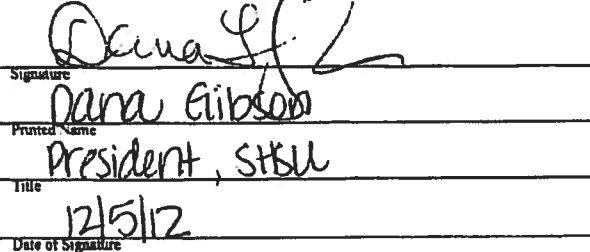 Dana
Signature
Dana Gibson
Printed Name
President, SHSU
Title
12/5/12
Date of Signature